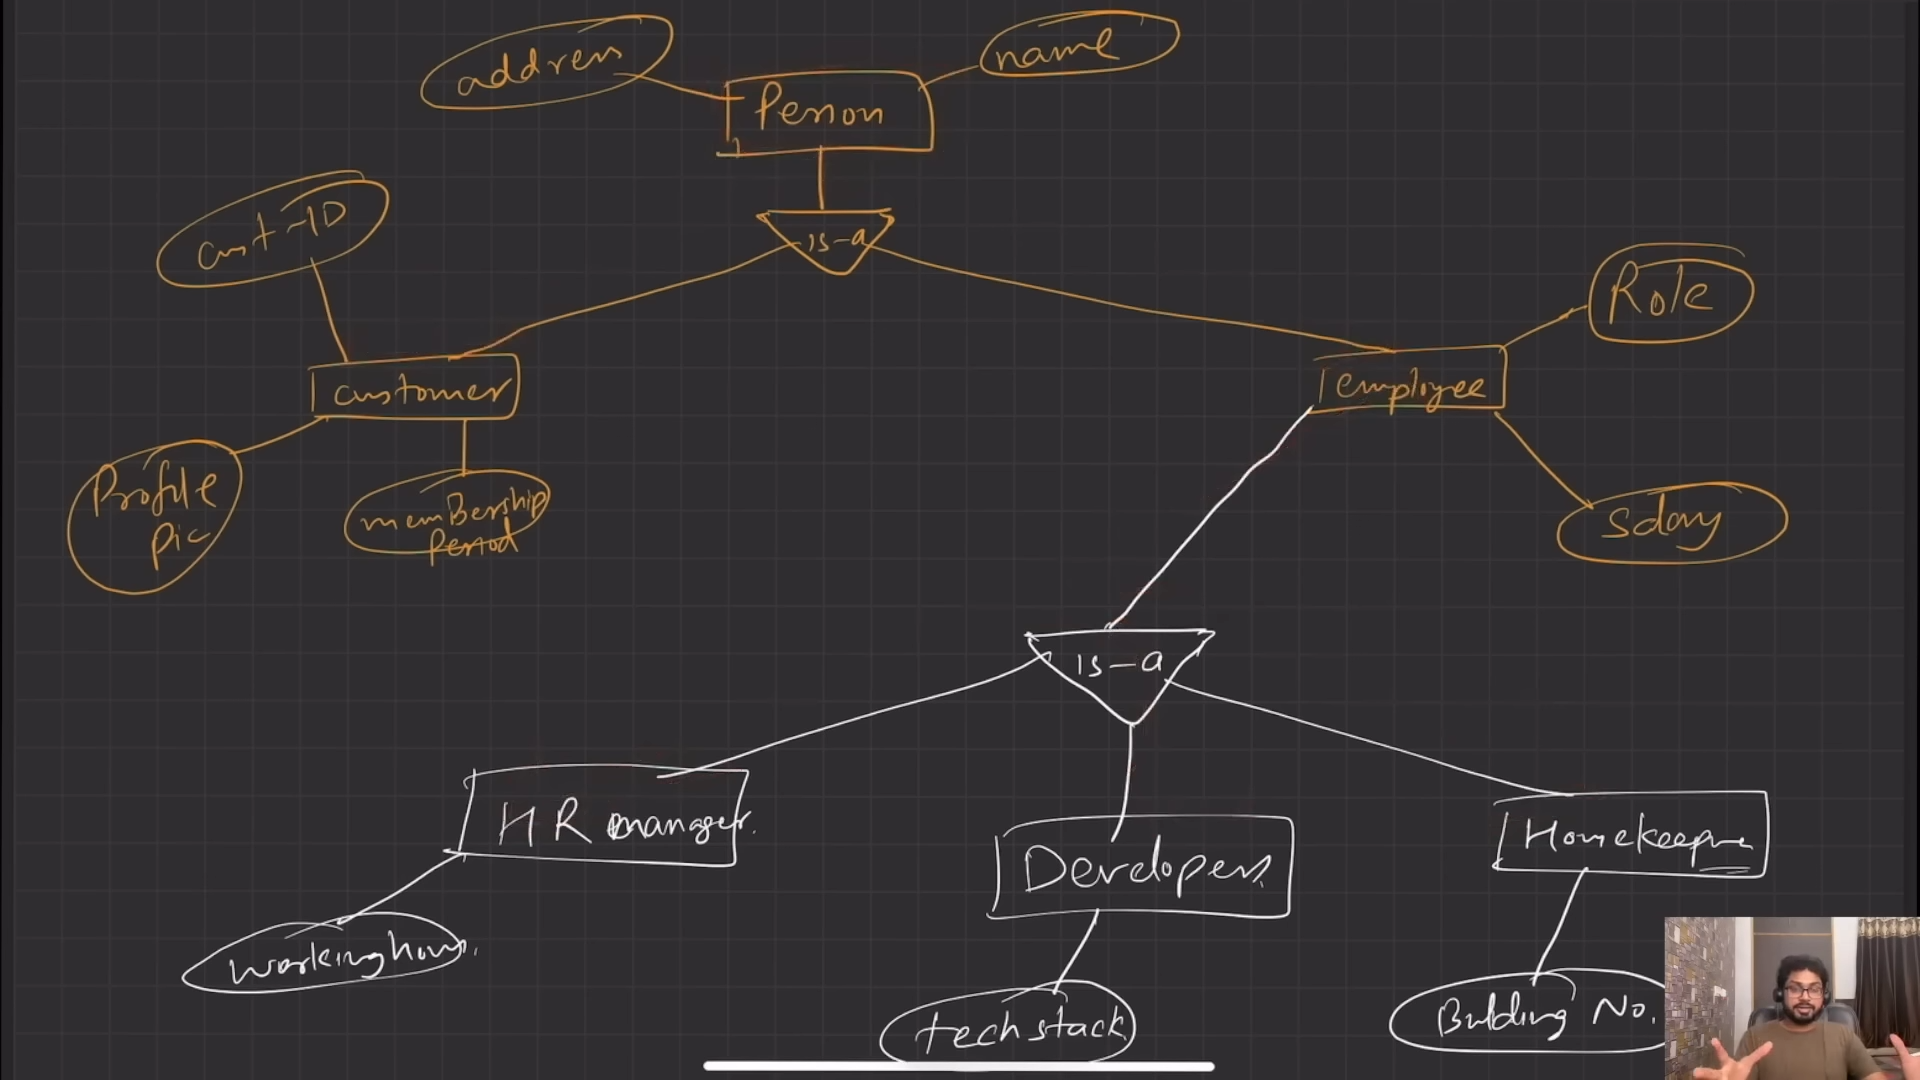 address
name
Person
cust-ID
is-a
Role
customer
employee
Profile
pic
memBership
Period
Salary
is-a
HR manager.
Developers
Homekeeping
working hours.
tech stack
Building No.